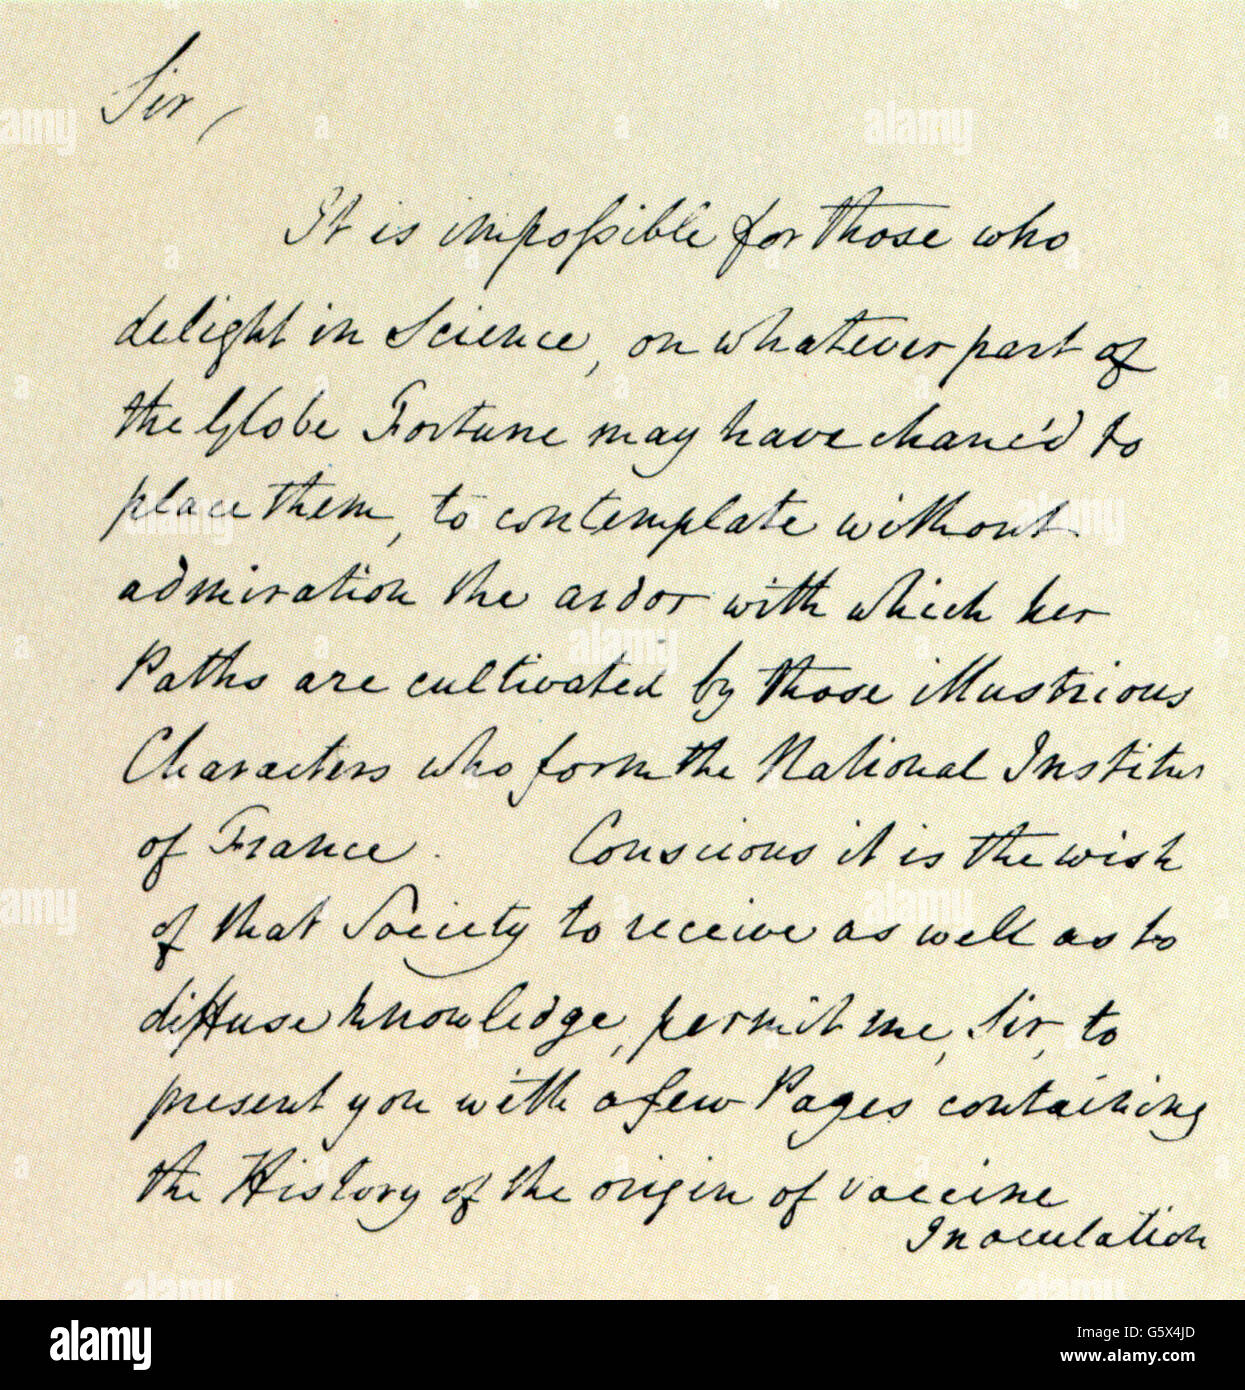 Sir,
It is impossible for those who
delight in Science, on whatever part of
the Globe Fortune may have chanc'd to
place them, to contemplate without
admiration the ardor with which her
Paths are cultivated by those illustrious
Characters who form the National Institute
of France. Conscious it is the wish
of that Society to receive as well as to
diffuse knowledge, permit me, Sir, to
present you with a few Pages containing
the History of the origin of vaccine
Inoculation
alamy
Image ID: G5X4JD
www.alamy.com